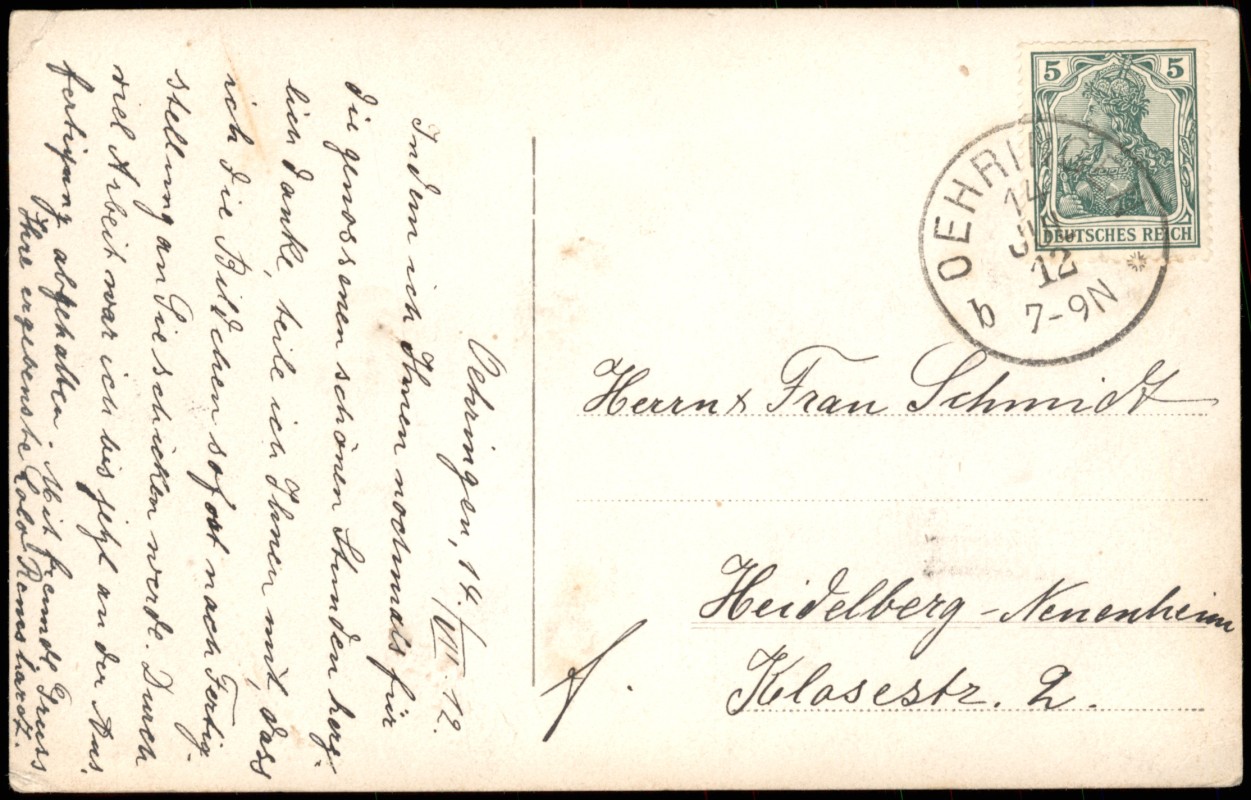 Oehringen, 14./VII. 12.
Indem ich Ihnen nochmals für
die genossenen schönen Stunden herz-
lich danke, teile ich Ihnen mit, dass
ich die Bildchen sofort nach Fertig-
stellung an Sie schicken werde. Durch
viel Arbeit war ich bis jetzt an der An-
fertigung abgehalten. Mit freundl. Gruss
Ihre ergebenste
5 5
DEUTSCHES REICH
OEHRINGEN
14
JUL
12
7-9N
b
Herrn & Frau Schmidt
Heidelberg-Neuenheim
Klosestr. 2.
f.